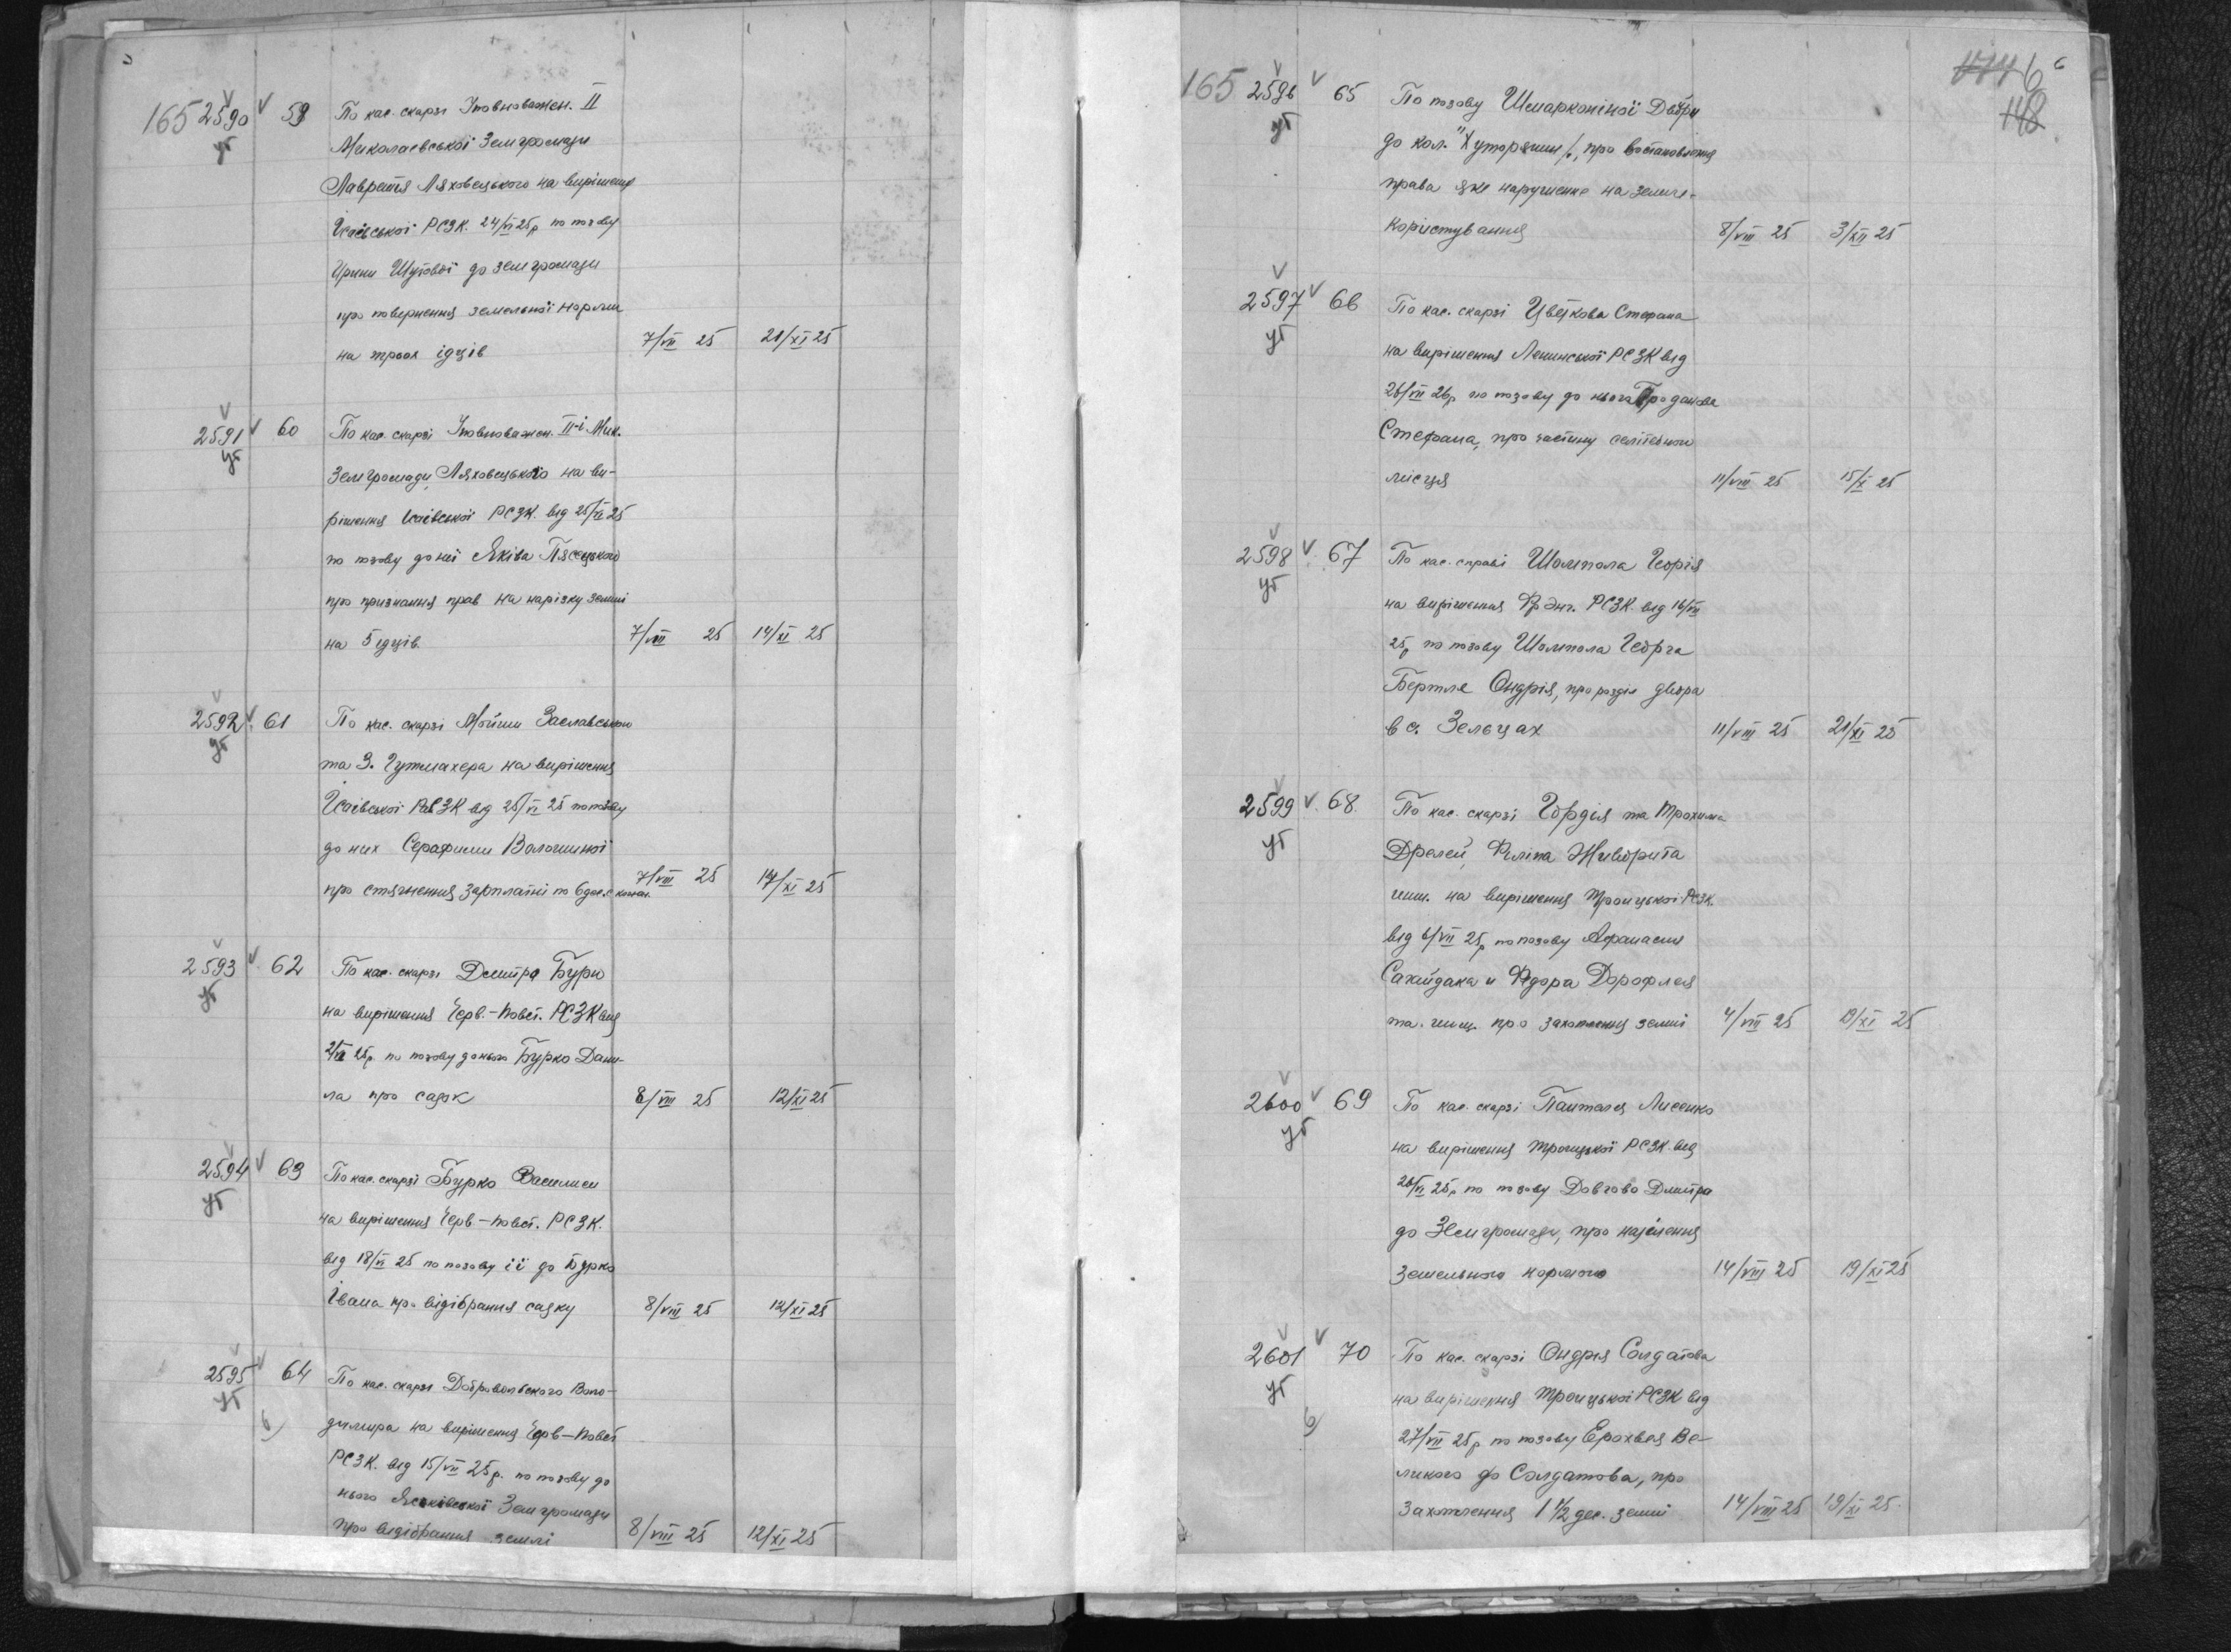 165 2590 59 По кас. скарзі Уповноважен. II
уг Миколаєвської Земгромади
Лаврентія Ляховецького на вирішення
Ісаївської РСЗК. 24/VI 25р по позову
Ірини Шутової до земгромади
про повернення земельної норми
на трьох їдців 7/VII 25 21/XI 25
2591 60 По кас. скарзі Уповноважен. II-ї Мик.
уг Земгромади, Ляховецького на ви-
рішення Ісаївської РСЗК. від 25/VI 25
по позову до неї Яківа Пясецького
про признання прав на нарізку землі
на 5 їдців. 7/VIII 25 14/XI 25
2592 61 По кас. скарзі Мойши Заславського
уг та З. Гутмахера на вирішення
Ісаївської РСЗК від 25/VI 25 по позову
до них Серафими Волошиної
про стягнення зарплатні по 6 дес. 7/VIII 25 14/XI 25
2593 62 По кас. скарзі Дмитра Бурко
уг на вирішення Черв.-Повст. РСЗК від
25р. по позову до нього Бурко Дани-
ла про садок 8/VIII 25 12/XI 25
2594 63 По кас. скарзі Бурко Василиси
уг на вирішення Черв-Повст. РСЗК.
від 18/VI 25 по позову її до Бурко
Івана про відібрання садку 8/VIII 25 12/XI 25
2595 64 По кас. скарзі Добровольского Воло-
уг димира на вирішення Черв-Повст
РСЗК. від 15/VII 25р. по позову до
нього Яськівської Земгромади
про відібрання землі 8/VIII 25 12/XI 25
6
118
165 2596 65 По позову Шмарконіної Двойри
уг до кол. "Хуторянин", про востановлення
права яке нарушенно на земле-
користування 8/VIII 25 3/XII 25
2597 66 По кас. скарзі Цвєткова Степана
уг на вирішення Ленинської РСЗК від
26/VII 26р по позову до нього Проданова
Стефана, про частину селітьбного
місця 11/VIII 25 15/X 25
2598 67 По кас. справі Шомпола Георгія
уг на вирішення Фр. Энг. РСЗК від 16/VII
25р по позову Шомпола Георга
Бертле Ондрія, про розділ двора
в с. Зельцах 11/VIII 25 21/XI 25
2599 68. По кас. скарзі Гордія та Трохима
уг Дралей, Филіпа Живорита
инш. на вирішення Троицької РСЗК.
від 6/VII 25р по позову Афанасия
Сахайдака и Федора Дорофлея
та. инш. про захоплення землі 4/VIII 25 19/XI 25
2600 69 По кас. скарзі Панталея Лисенко
уг на вирішення Троицької РСЗК. від
25р по позову Довгово Дмитра
до Земгромади, про наділення
земельного нормою 14/VIII 25 19/XI 25
2601 70 По кас. скарзі Ондрея Солдатова
уг на вирішення Троицької РСЗК від
27/VII 25р по позову Ерохвея Ве-
ликого до Солдатова, про
захоплення 1 1/2 дес. землі 14/VIII 25 19/XI 25.